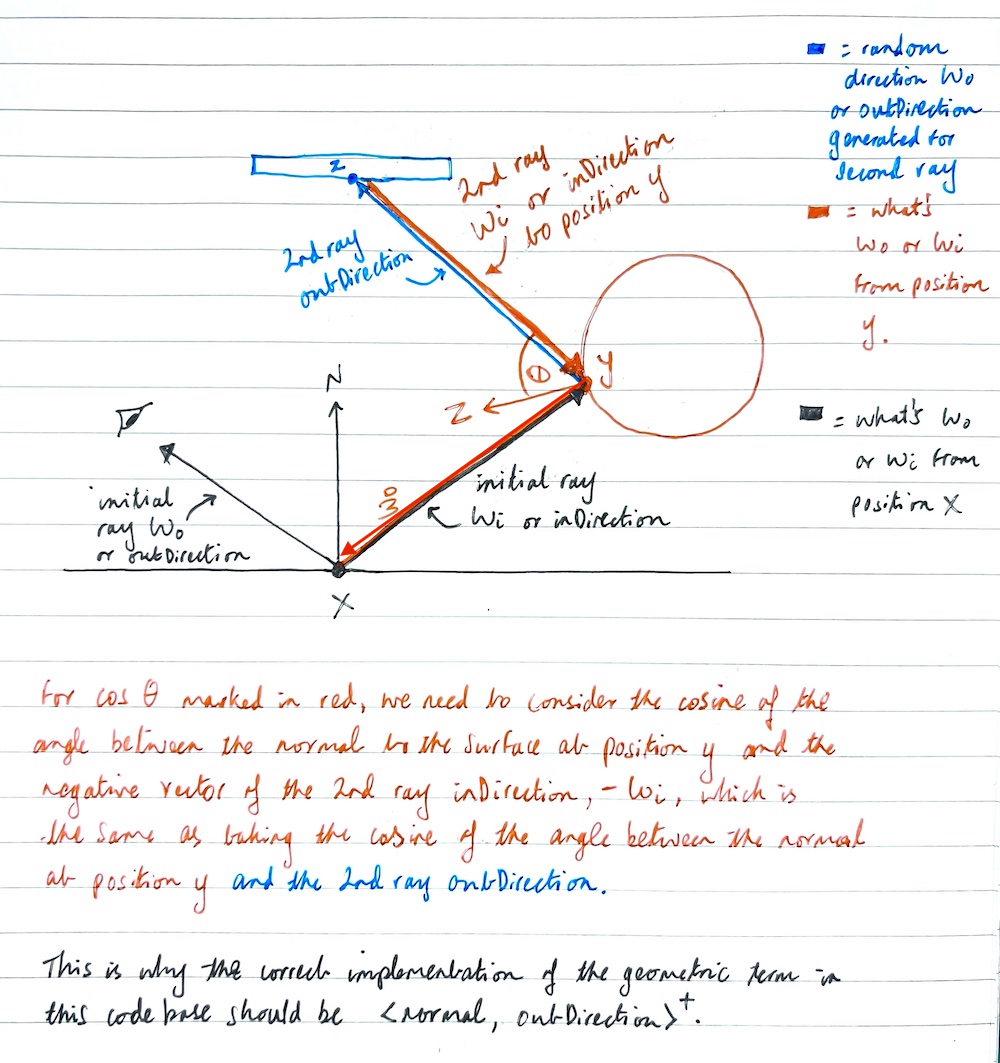 = random
direction Wo
or outDirection
generated for
second ray
= what's
Wo or Wi
from position
y.
= what's Wo
or Wi from
position X
z
2nd ray
Wi or inDirection
to position y
2nd ray
outDirection
y
θ
N
N
initial
ray Wo
or outDirection
Wo
initial ray
Wi or inDirection
X
For cos θ marked in red, we need to consider the cosine of the
angle between the normal to the surface at position y and the
negative vector of the 2nd ray inDirection, - Wi, which is
the same as taking the cosine of the angle between the normal
at position y and the 2nd ray outDirection.
This is why the correct implementation of the geometric term in
this codebase should be <normal, outDirection>⁺.